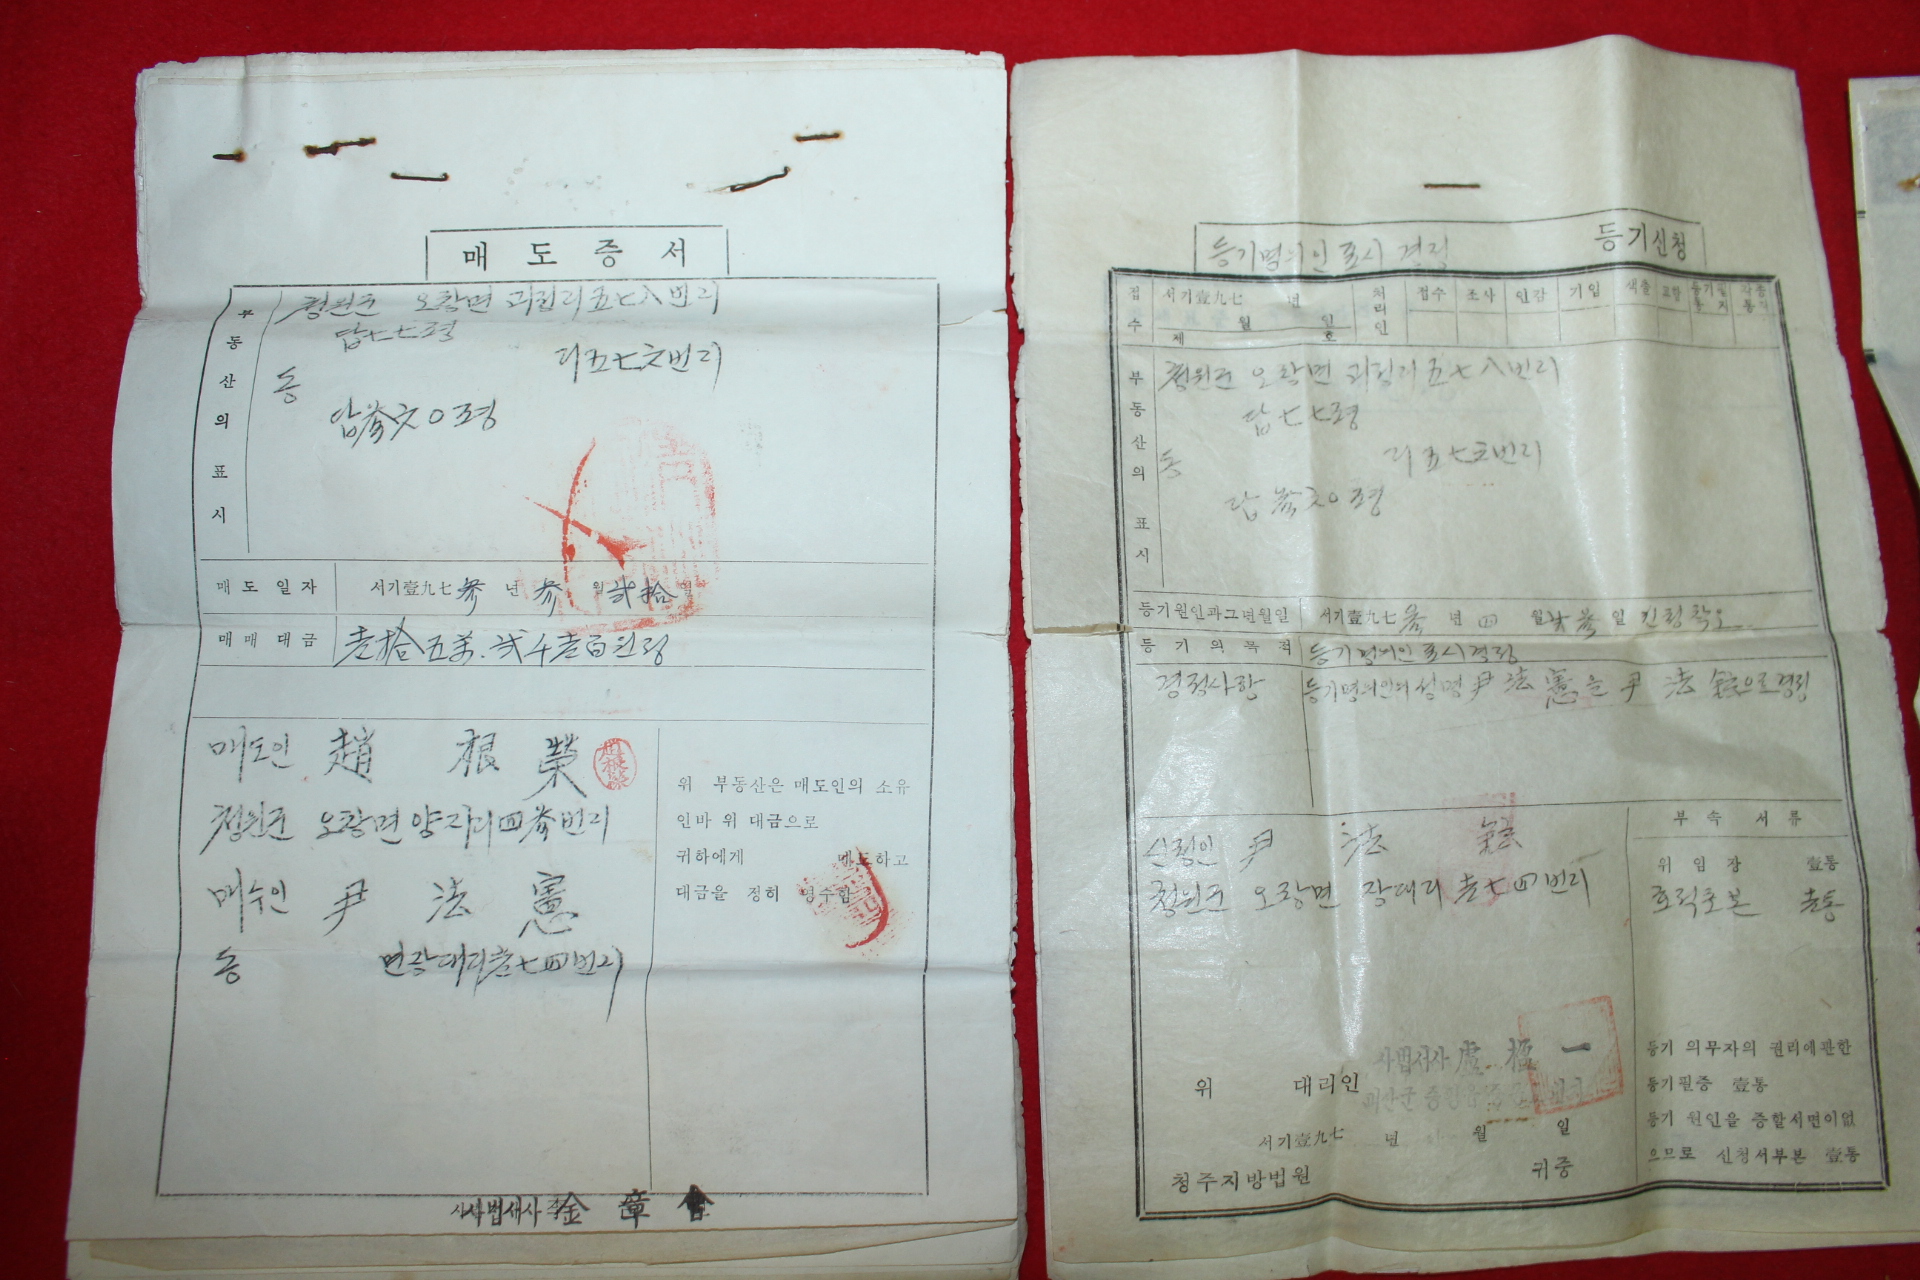 매도증서
부동산의 표시
청원군 오창면 괴정리 五七八번지
답 七七평
동 리 五七六번지
답 參六○평
매도일자 서기壹九七參년 參월 貳拾일
매매대금 壹拾五萬貳千壹百원정
매도인 趙根榮
청원군 오창면 양지리 四參번지
매수인 尹法憲
동 면 장대리 壹七四번지
위 부동산은 매도인의 소유
인바 위 대금으로
귀하에게 매도하고
대금을 정히 영수함
사법서사 金章會
등기명의인표시경정 등기신청
접수 서기壹九七 년 월 일
제 호
처리인 접수 조사 인감 기입 색출
부동산의 표시
청원군 오창면 괴정리 五七八번지
답 七七평
동 리 五七六번지
답 參六○평
등기원인과그년월일 서기壹九七參년 四월 일 신청착오
등기의목적 등기명의인표시경정
경정사항 등기명의인의 성명 尹法憲을 尹法 으로 경정
신청인 尹法
청원군 오창면 장대리 壹七四번지
부속서류
위임장 壹통
호적초본 壹통
사법서사 一
위 대리인
괴산군 증평읍
서기壹九七 년 월 일
청주지방법원 귀중
등기 의무자의 권리에관한
등기필증 壹통
등기 원인을 증할서면이없
으므로 신청서부본 壹통